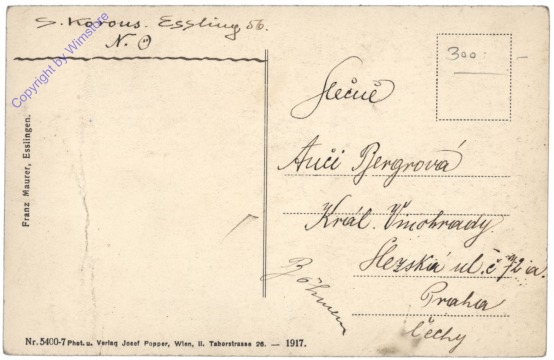 S. Korous. Essling 56.
N. Ö
Copyright by Wimstore
300.-
Slečně
Anči Bergrová
Král. Vinohrady.
Slezská ul. č 72 a.
Praha
Čechy
Böhmen
Franz Maurer, Esslingen.
Nr. 5400-7 Phot. u. Verlag Josef Popper, Wien, II. Taborstrasse 26. — 1917.